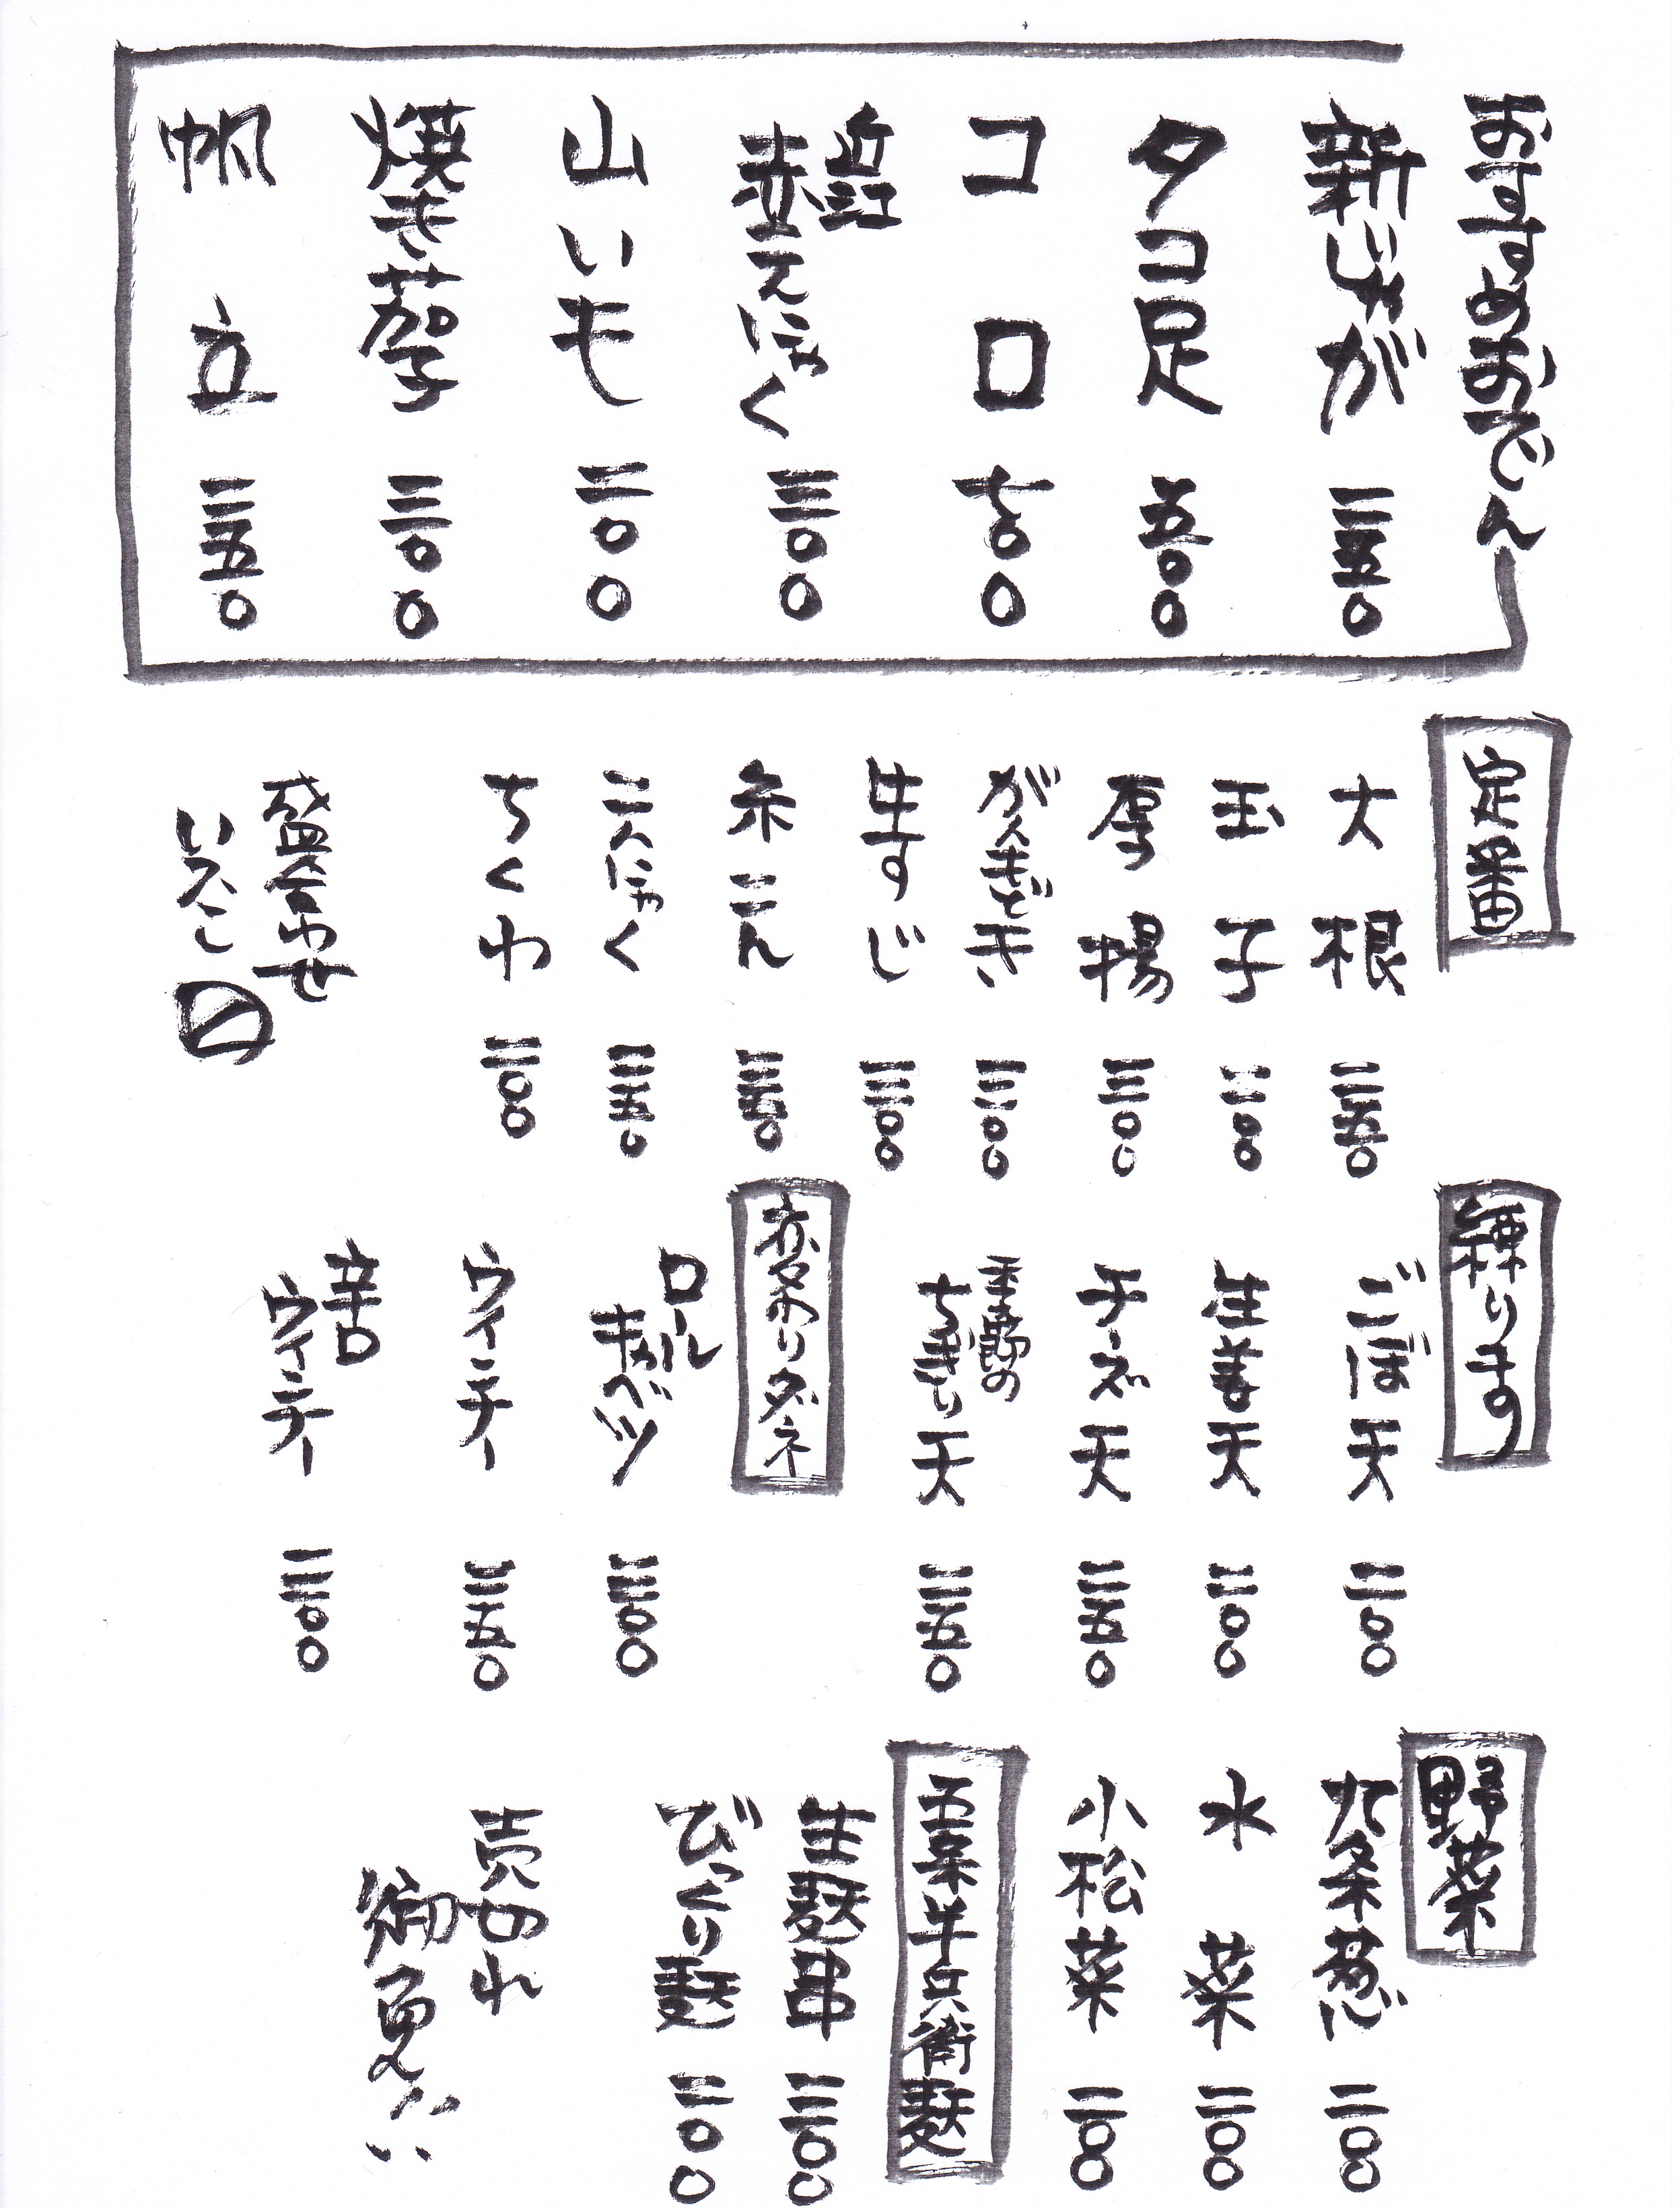 おすすめおでん
新じゃが 二五〇
タコ足 五〇〇
コロ 七〇〇
近江
赤こんにゃく 三〇〇
山いも 二〇〇
焼き茄子 三〇〇
帆立 三五〇
定番
大根 二五〇
玉子 二〇〇
厚揚 三〇〇
がんもどき 三〇〇
牛すじ 三〇〇
糸こん
こんにゃく 二五〇
ちくわ 二〇〇
盛合わせ
いたし〼
練ります
ごぼ天 二〇〇
生姜天 二〇〇
チーズ天 二五〇
季節の
ちぎり天 二五〇
変わりダネ
ロール
キャベツ 三〇〇
ウインナー 二五〇
辛口
ウインナー 三〇〇
野菜
九条葱 二〇〇
水菜 二〇〇
小松菜 二〇〇
五条半兵衛麸
生麸串 三〇〇
びっくり麸 二〇〇
売切れ
御免!!